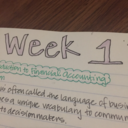 Week 1
Introduction to Financial Accounting
often called the language of busi
unique vocabulary to commun
to decision makers.